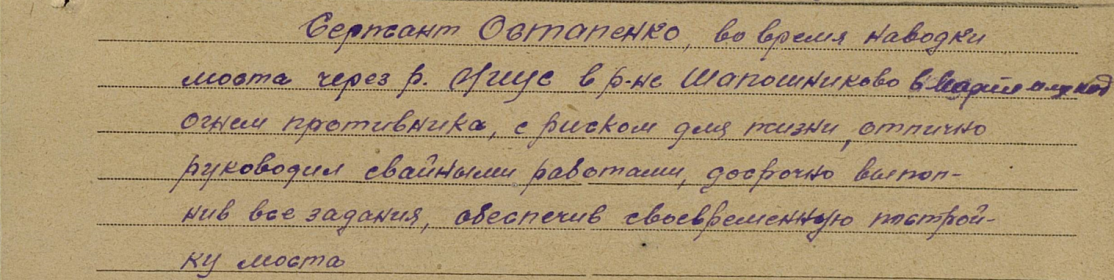 Сержант Остапенко, во время наводки
моста через р. Миус в р-не Шапошниково в марте м-це под
огнем противника, с риском для жизни, отлично
руководил свайными работами, досрочно выпол-
нив все задания, обеспечив своевременную построй-
ку моста